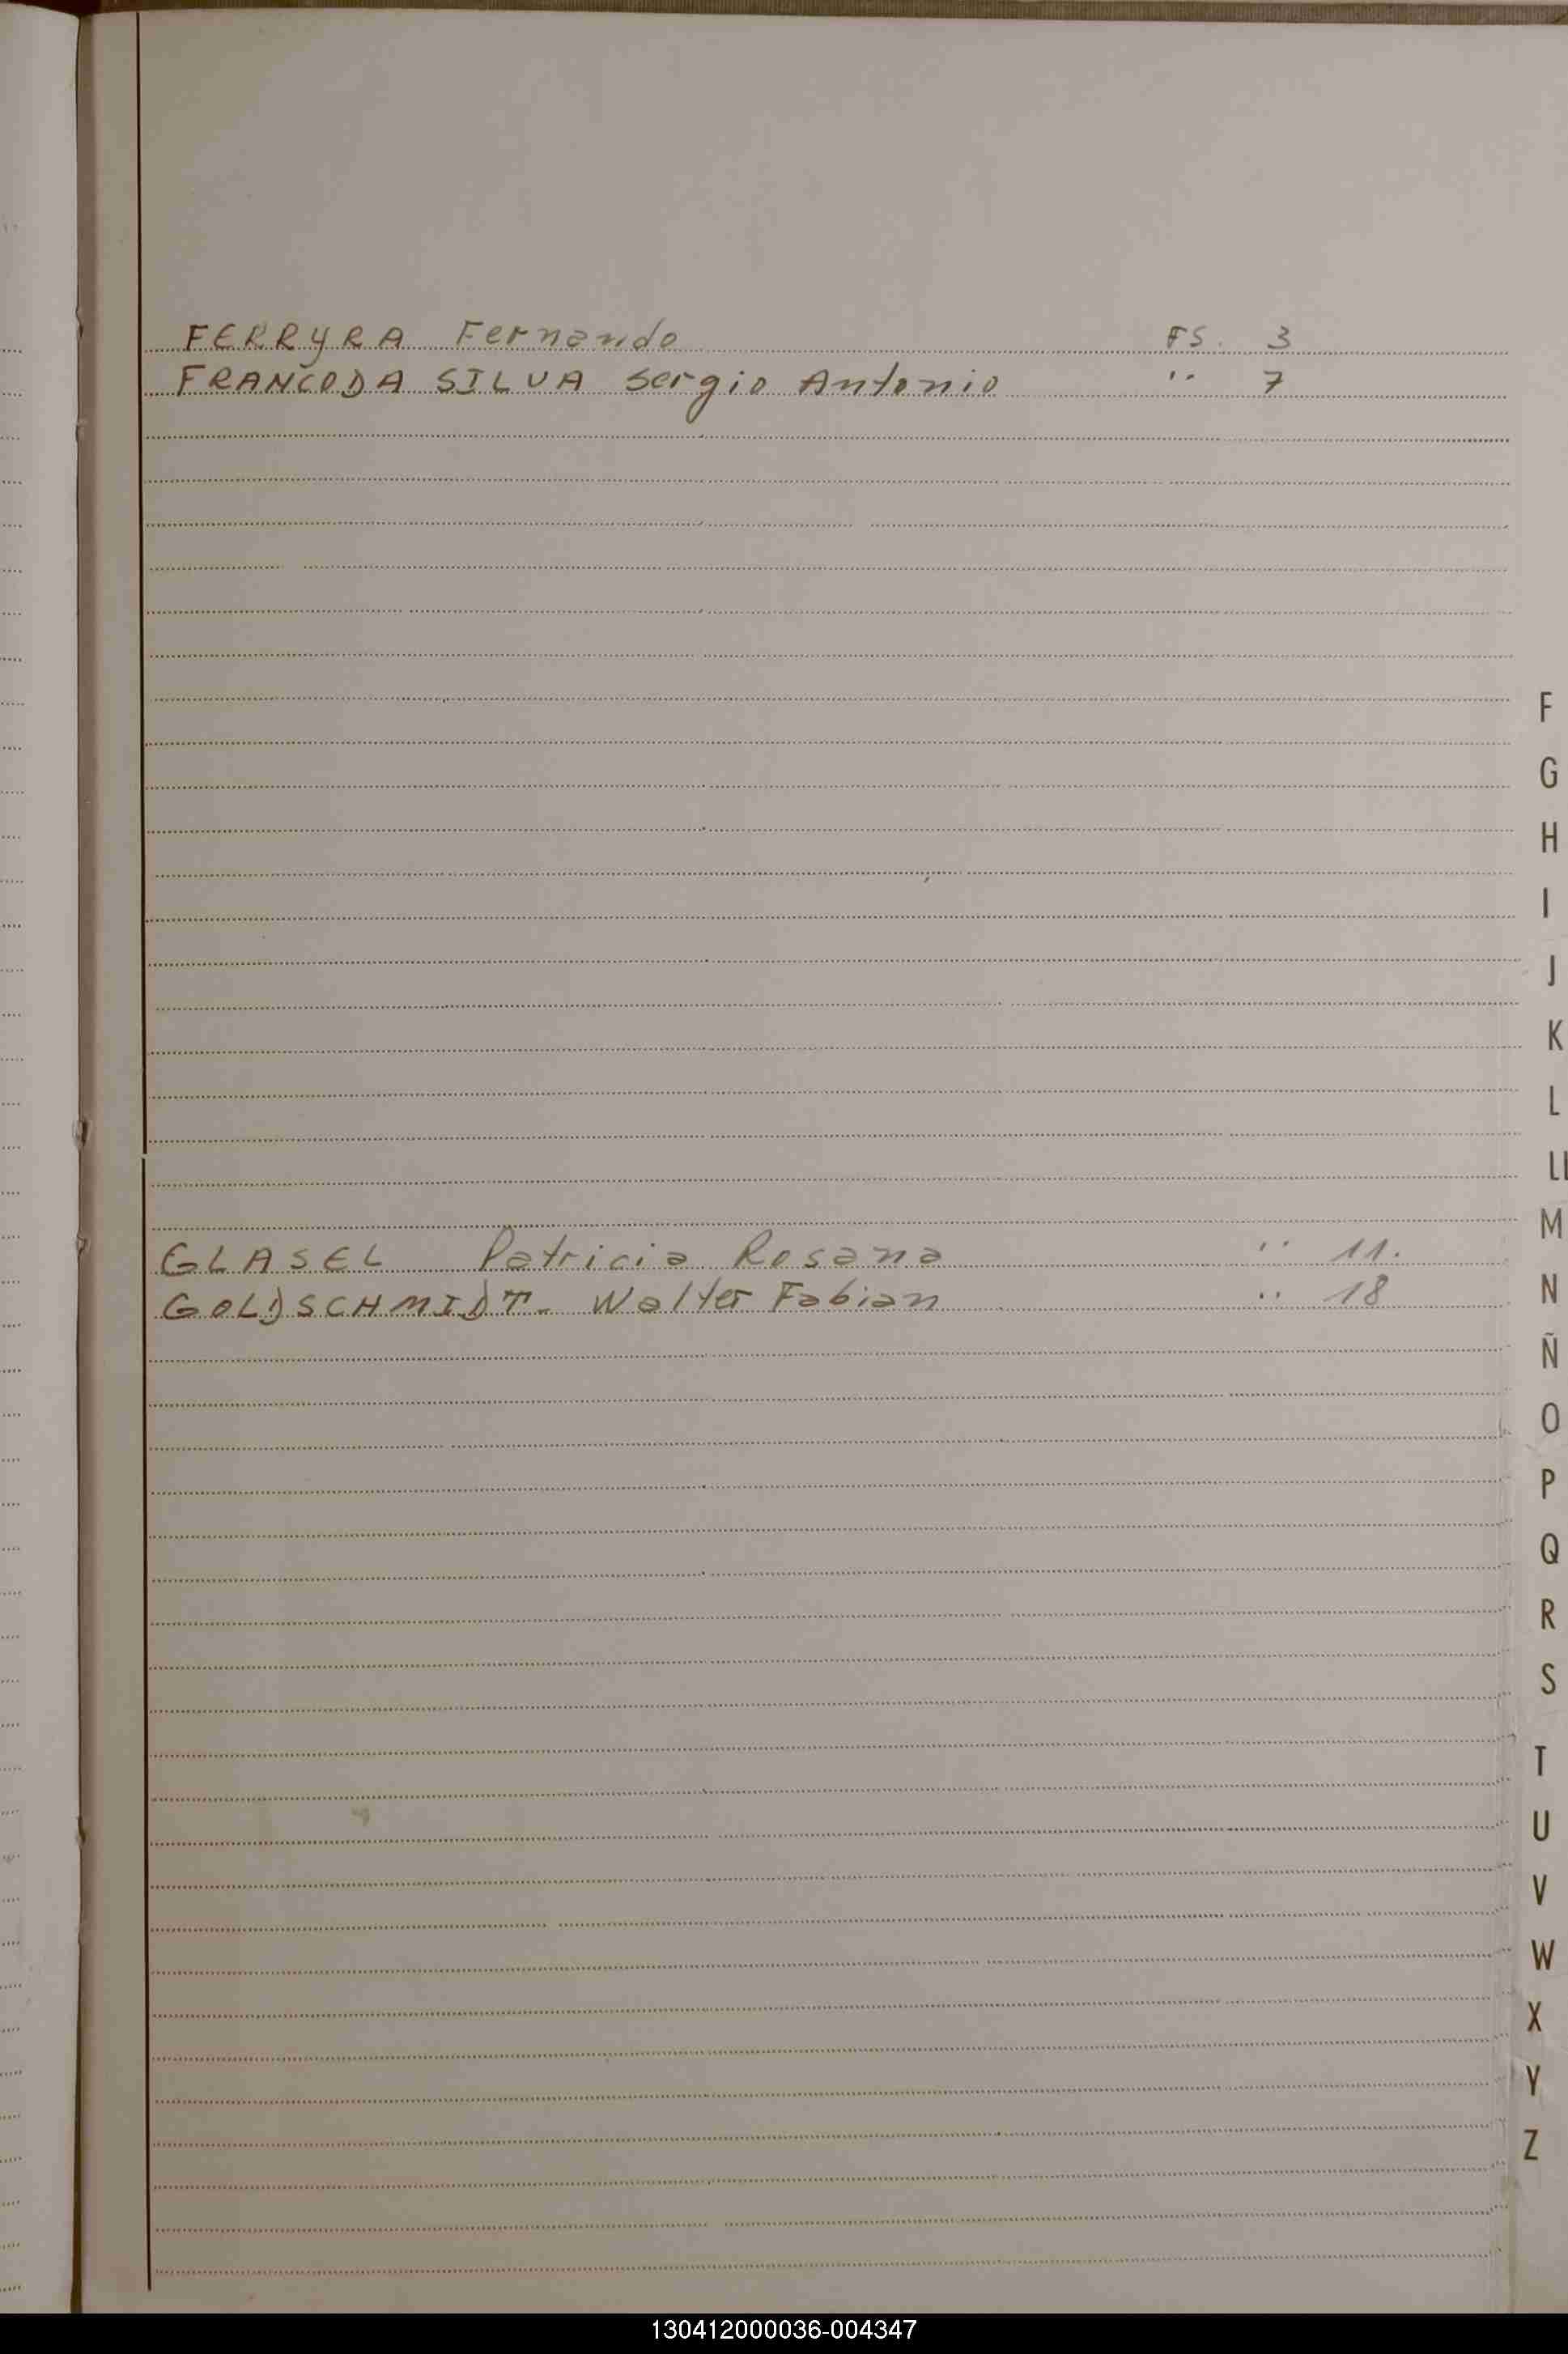 FERRYRA Fernando FS. 3
FRANCODA SILVA Sergio Antonio '' 7
F
G
H
I
J
K
L
Ll
M
GLASEL Patricia Rosana '' 11.
N
GOLDSCHMIDT. Walter Fabian '' 18
Ñ
O
P
Q
R
S
T
U
V
W
X
Y
Z
130412000036-004347